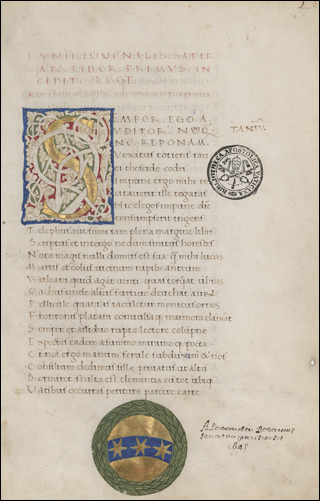 IVNII IVVENALIS SATIR
AR LIBER PRIMVS IN
CIPIT LEGE
SEMPER EGO A
VDITOR NVQ
TANTV:
NE REPONAM
Vexatus totiens rau
ci theseide codri
Inpune ergo mihi re
citauerit ille togatas
Hic elegos inpune die
consumpserit ingens
Telephus aut summi iam plena margine libri
Scriptus et in tergo nec dum finitus horestes
Nota magis nulli domus est sua q mihi lucus
Martis et eoliis uicinum rupibus antrum
quid agant uenti quas torqueat umbras
Aeacus unde alius furtiue deuehat aur
Pellicule quantas iaculetur monicus ornos
Frontonis platani conuulsaq marmora clamant
Semper et assiduo rupte lectore colupne
Expectes eadem a summo minimoq poeta
Et nos ergo manum ferule subduximus et nos
Consilium dedimus sille priuatus ut altu
Dormiret stulta est clementia cu tot ubiq
Vatibus occurras periture parcere carte
BIBLIOTHECA APOSTOLICA VATICANA
Alexander